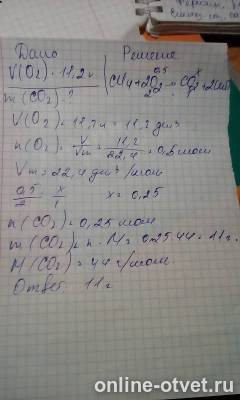 Дано Решение
V(O₂) = 11,2 л
m(CO₂)-?
0,5 x
CH₄ + 2O₂ = CO₂ + 2H₂O
V(O₂) = 11,2 л = 11,2 дм³
n(O₂) = V/Vm = 11,2/22,4 = 0,5 моль
Vm = 22,4 дм³/моль
0,5/2 = x/1 x = 0,25
n(CO₂) = 0,25 моль
m(CO₂) = n · M = 0,25·44 = 11 г.
M(CO₂) = 44 г/моль.
Ответ: 11 г
online-otvet.ru